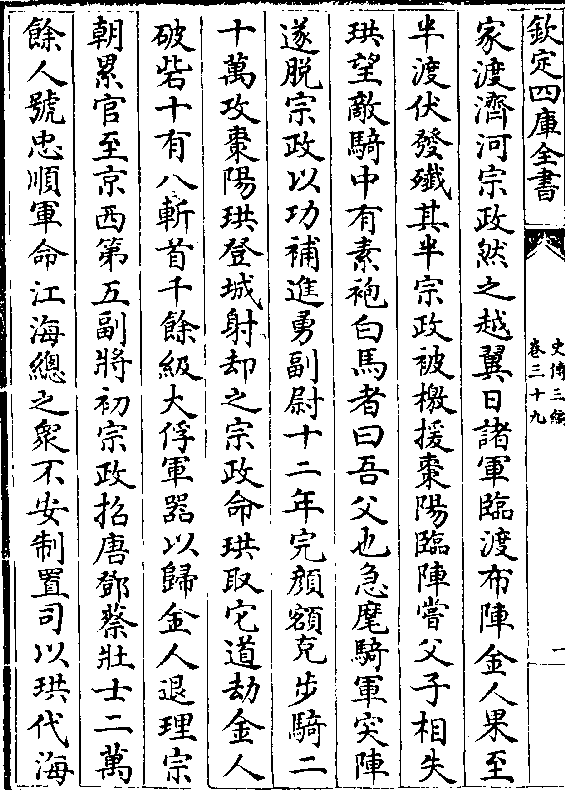 欽定四庫全書
史傳三編
卷三十九
一
家渡濟河宗政然之越翼日諸軍臨渡布陣金人果至
半渡伏發殲其半宗政被檄援棗陽臨陣嘗父子相失
珙望敵騎中有素袍白馬者曰吾父也急麾騎軍突陣
遂脱宗政以功補進勇副尉十二年完顔額克步騎二
十萬攻棗陽珙登城射却之宗政命珙取它道劫金人
破砦十有八斬首千餘級大俘軍器以歸金人退理宗
朝累官至京西第五副將初宗政招唐鄧蔡壯士二萬
餘人號忠順軍命江海總之衆不安制置司以珙代海